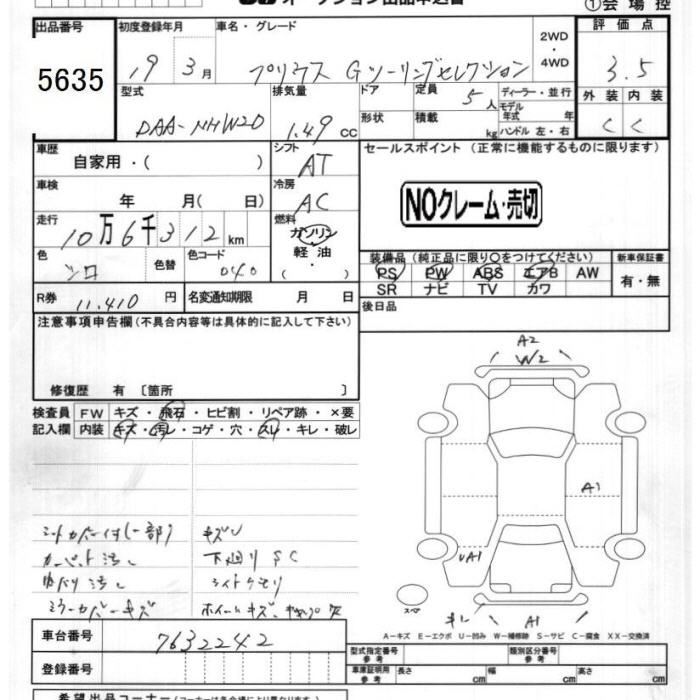 オークション出品申込書
①会場控
出品番号
5635
初度登録年月
19 3月
車名・グレード
プリウス Gツーリングセレクション
2WD
・
4WD
評価点
3.5
型式
DAA-NHW20
排気量
1.49 cc
ドア
定員 5人
ディーラー・並行
形状
積載 kg
モデル年式 年
ハンドル 左・右
外装 内装
C C
車歴
自家用・( )
シフト
AT
車検
年 月( 日)
冷房
AC
走行
10万6千312 km
燃料
ガソリン・
軽油・
( )
色
シロ
色替
色コード
040
R券 11.410 円
名変通知期限 月 日
セールスポイント(正常に機能するものに限ります)
NOクレーム・売切
装備品(純正品に限り○をつけてください)
PS PW ABS エアB AW
SR ナビ TV カワ
新車保証書
有・無
後日品
注意事項申告欄(不具合内容等は具体的に記入して下さい)
修復歴 有 〔箇所 〕
検査員 FW キズ・飛石・ヒビ割・リペア跡・×要
記入欄 内装 キズ・汚レ・コゲ・穴・スレ・キレ・破レ
シートカバー付(一部)
カーペット汚レ
ミラーカバーキズ
キズU
下廻りSC
ライトクモリ
A2
W2
A1
UA1
A1
スペア
A−キズ E−エクボ U−凹み W−補修跡 S−サビ C−腐食 XX−交換済
車台番号 7632242
登録番号
型式指定番号
参考
類別区分番号
参考
車庫証明用
参考
長さ cm
幅 cm
高さ cm
希望出品コーナー